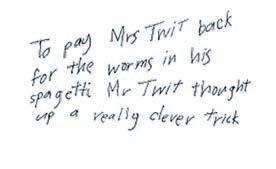 To pay Mrs Twit back
for the worms in his
spagetti Mr Twit thought
up a really clever trick